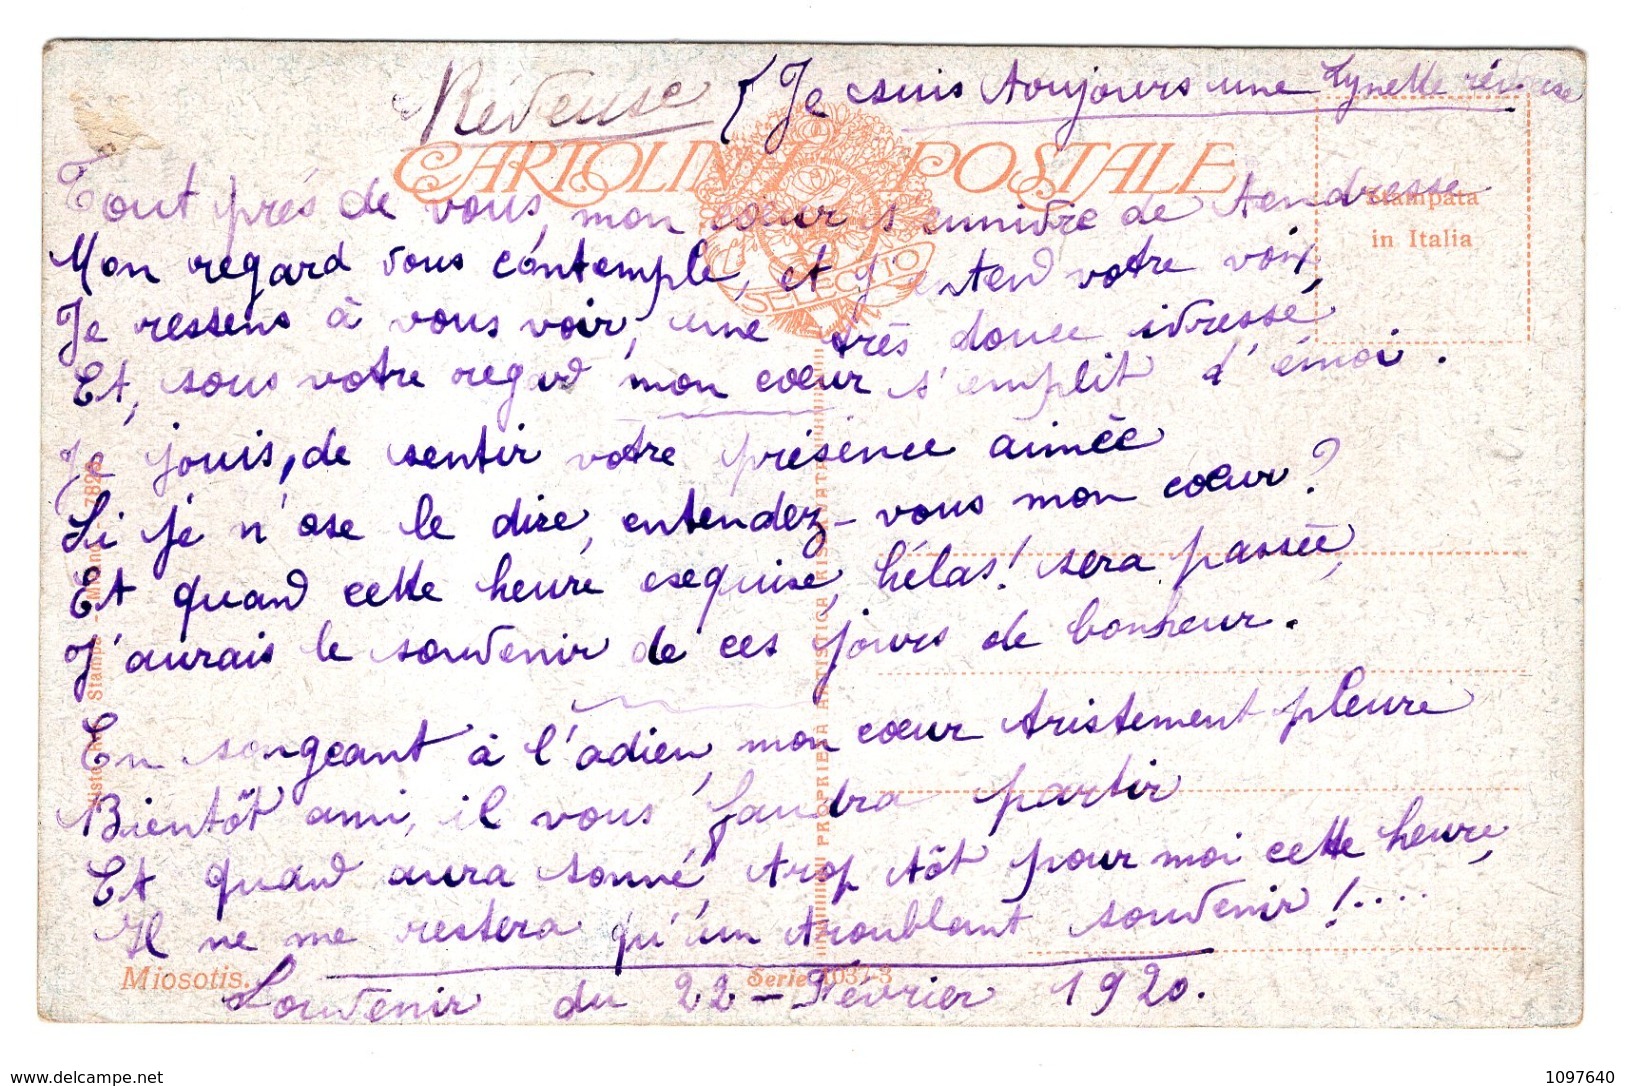 Rêveuse { Je suis toujours une Lynette rêveuse
CARTOLINA POSTALE
Tout près de vous, mon cœur s'ennivre de tendresse
Stampata
in Italia
Mon regard vous contemple, et j'entend votre voix,
SELECTIO
Je ressens à vous voir, une très douce ivresse,
Et, sous votre regard mon cœur s'emplit d'émoi.
Je jouis, de sentir votre présence aimée
Si je n'ose le dire, entendez-vous mon cœur?
Et quand cette heure exequise, hélas! sera passée,
J'aurais le souvenir de ces jours de bonheur.
En songeant à l'adieu, mon cœur tristement pleure
Bientôt ami, il vous faudra partir
Et quand aura sonné, trop tôt pour moi cette heure,
Il ne me restera qu'un troublant souvenir!....
Miosotis.
Serie 1037-3
Souvenir du 22 - Février 1920.
PROPRIETÀ ARTISTICA RISERVATA
www.delcampe.net
1097640